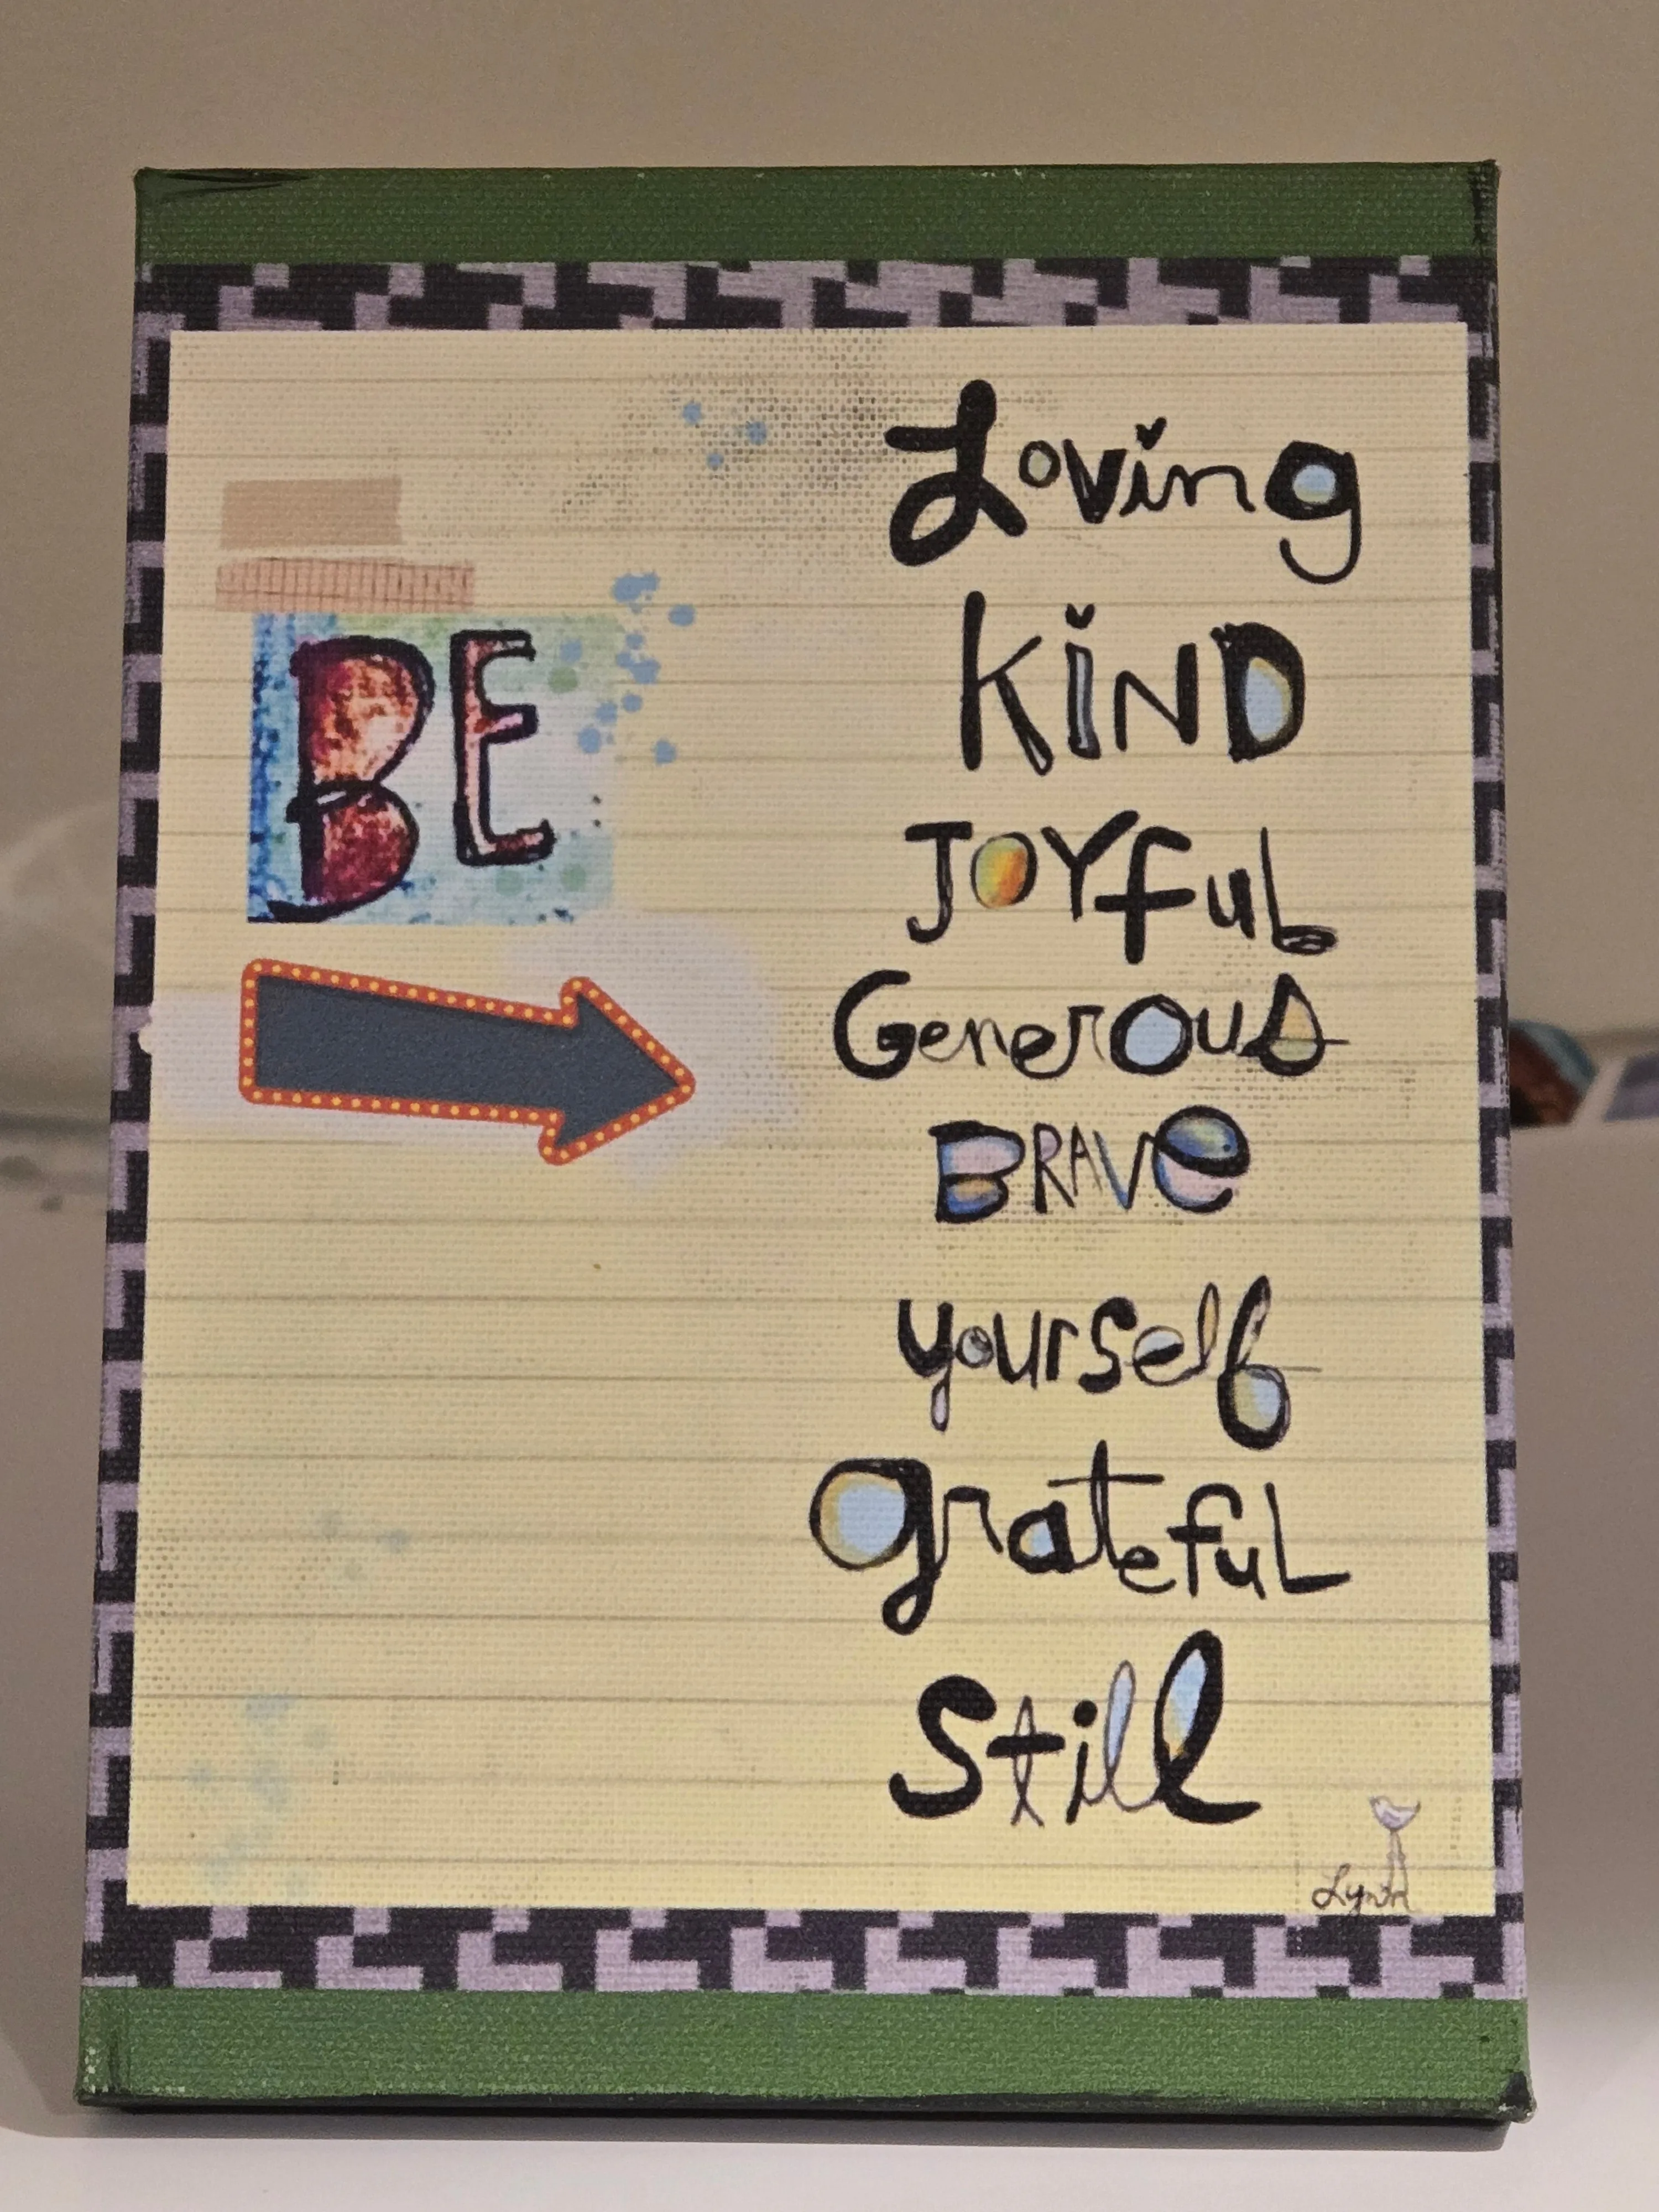 BE
Loving
KiND
JOYfuL
Generous
BRAVe
yourself
grateful
Still
Lynn